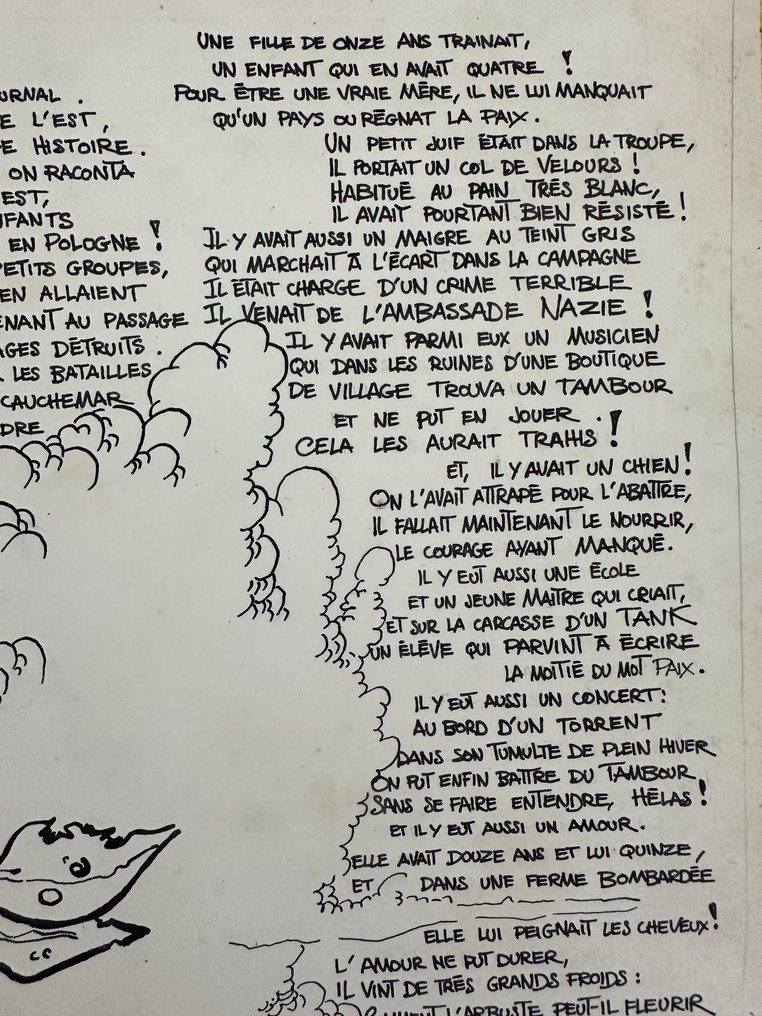 URNAL .
E L'EST,
E HISTOIRE.
ON RACONTA
EST,
NFANTS
EN POLOGNE !
PETITS GROUPES,
EN ALLAIENT
ENANT AU PASSAGE
AGES DÉTRUITS.
LES BATAILLES
CAUCHEMAR
DRE
UNE FILLE DE ONZE ANS TRAINAIT,
UN ENFANT QUI EN AVAIT QUATRE !
POUR ÊTRE UNE VRAIE MÈRE, IL NE LUI MANQUAIT
QU'UN PAYS OU RÉGNAT LA PAIX.
UN PETIT JUIF ÉTAIT DANS LA TROUPE,
IL PORTAIT UN COL DE VELOURS !
HABITUÉ AU PAIN TRÈS BLANC,
IL AVAIT POURTANT BIEN RÉSISTÉ !
IL Y AVAIT AUSSI UN MAIGRE AU TEINT GRIS
QUI MARCHAIT À L'ÉCART DANS LA CAMPAGNE
IL ÉTAIT CHARGÉ D'UN CRIME TERRIBLE
IL VENAIT DE L'AMBASSADE NAZIE !
IL Y AVAIT PARMI EUX UN MUSICIEN
QUI DANS LES RUINES D'UNE BOUTIQUE
DE VILLAGE TROUVA UN TAMBOUR
ET NE PUT EN JOUER .
CELA LES AURAIT TRAHIS !
ET, IL Y AVAIT UN CHIEN !
ON L'AVAIT ATTRAPÉ POUR L'ABATTRE,
IL FALLAIT MAINTENANT LE NOURRIR,
LE COURAGE AYANT MANQUÉ.
IL Y EUT AUSSI UNE ÉCOLE
ET UN JEUNE MAÎTRE QUI CRIAIT,
ET SUR LA CARCASSE D'UN TANK
UN ÉLÈVE QUI PARVINT À ÉCRIRE
LA MOITIÉ DU MOT PAIX.
IL Y EUT AUSSI UN CONCERT:
AU BORD D'UN TORRENT
DANS SON TUMULTE DE PLEIN HIVER
ON PUT ENFIN BATTRE DU TAMBOUR
SANS SE FAIRE ENTENDRE, HÉLAS !
ET IL Y EUT AUSSI UN AMOUR.
ELLE AVAIT DOUZE ANS ET LUI QUINZE,
ET DANS UNE FERME BOMBARDÉE
ELLE LUI PEIGNAIT LES CHEVEUX !
L'AMOUR NE PUT DURER,
IL VINT DE TRÈS GRANDS FROIDS :
COMMENT L'ARBUSTE PEUT-IL FLEURIR